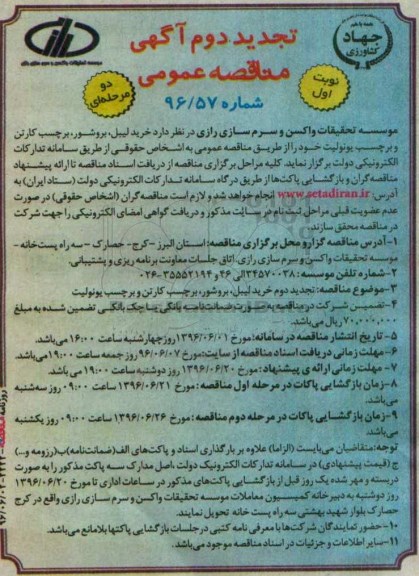 جهاد
کشاورزی
تجدید دوم آگهی
مناقصه عمومی
شماره ۹۶/۵۷
نوبت
اول
دو
مرحله‌ای
موسسه تحقیقات واکسن و سرم سازی رازی در نظر دارد خرید لیبل، بروشور، برچسب کارتن
و برچسب یونولیت خود را از طریق مناقصه عمومی به اشخاص حقوقی از طریق سامانه تدارکات
الکترونیکی دولت برگزار نماید. کلیه مراحل برگزاری مناقصه از دریافت اسناد مناقصه تا ارائه پیشنهاد
مناقصه گران و بازگشایی پاکت‌ها از طریق درگاه سامانه تدارکات الکترونیکی دولت (ستاد ایران) به
آدرس: www.setadiran.ir انجام خواهد شد و لازم است مناقصه گران (اشخاص حقوقی) در صورت
عدم عضویت قبلی مراحل ثبت نام در سایت مذکور و دریافت گواهی امضای الکترونیکی را جهت شرکت
در مناقصه محقق سازند.
۱- آدرس مناقصه گزار و محل برگزاری مناقصه: استان البرز – کرج – حصارک – سه راه پست خانه -
موسسه تحقیقات واکسن و سرم سازی رازی. اتاق جلسات معاونت برنامه ریزی و پشتیبانی.
۲- شماره تلفن موسسه: ۳۴۵۷۰۰۳۸ الی ۴۶ و ۳۵۵۵۲۱۹۴-۰۲۶
۳- موضوع مناقصه: تجدید دوم خرید لیبل، بروشور، برچسب کارتن و برچسب یونولیت
۴- تضمین شرکت در مناقصه به صورت ضمانت نامه بانکی یا چک بانکی تضمین شده به مبلغ
۷۰,۰۰۰,۰۰۰ ریال می‌باشد.
۵- تاریخ انتشار مناقصه در سامانه: مورخ ۱۳۹۶/۰۶/۰۱ روز چهارشنبه ساعت ۱۶:۰۰ می‌باشد.
۶- مهلت زمانی دریافت اسناد مناقصه از سایت: مورخ ۹۶/۰۶/۰۷ روز جمعه ساعت ۱۹:۰۰ می‌باشد.
۷- مهلت زمانی ارائه ی پیشنهاد: مورخ ۱۳۹۶/۰۶/۲۰ روز دوشنبه ساعت ۱۹:۰۰ می باشد.
۸- زمان بازگشایی پاکات در مرحله اول مناقصه: مورخ ۱۳۹۶/۰۶/۲۱ ساعت ۰۹:۰۰ روز سه‌شنبه
می‌باشد.
۹- زمان بازگشایی پاکات در مرحله دوم مناقصه: مورخ ۱۳۹۶/۰۶/۲۶ ساعت ۰۹:۰۰ روز یکشنبه
می‌باشد.
توجه: متقاضیان می‌بایست (الزاما) علاوه بر بارگذاری اسناد و پاکت‌های الف (ضمانت‌نامه) ب (رزومه و...)
ج (قیمت پیشنهادی) در سامانه تدارکات الکترونیک دولت، اصل مدارک سه پاکت مذکور را به صورت
دربسته و مهر شده یک روز قبل از بازگشایی پاکت‌های مذکور در ساعات اداری تا مورخ ۱۳۹۶/۰۶/۲۰
روز دوشنبه به دبیرخانه کمیسیون معاملات موسسه تحقیقات واکسن و سرم سازی رازی واقع در کرج
حصارک بلوار شهید بهشتی سه راه پست خانه تحویل نمایند.
۱۰- حضور نمایندگان شرکت‌ها با معرفی نامه کتبی در جلسات بازگشایی پاکتها بلامانع می‌باشد.
۱۱- سایر اطلاعات و جزئیات در اسناد مناقصه موجود می‌باشد.